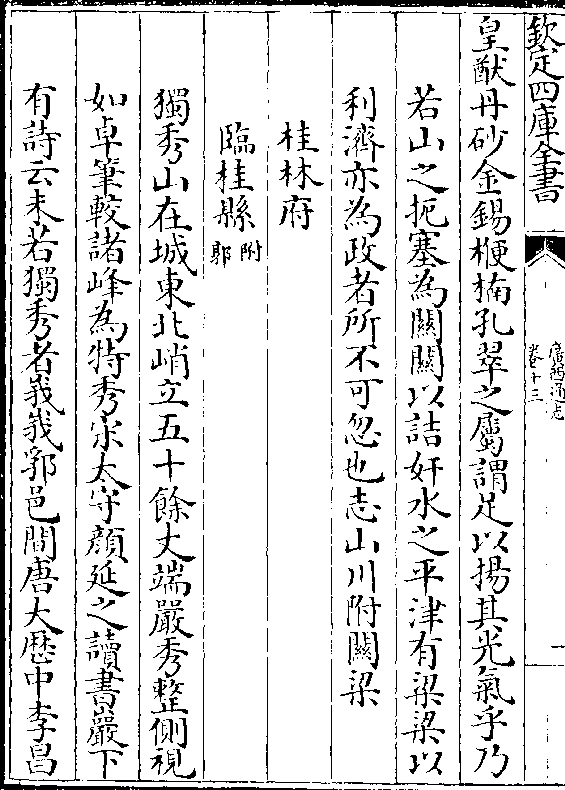 欽定四庫全書
廣西通志
卷十三
一
皇猷丹砂金錫楩楠孔翠之屬謂足以揚其光氣乎乃
若山之扼塞為關關以詰奸水之平津有梁梁以
利濟亦為政者所不可忽也志山川附關梁
桂林府
臨桂縣附郭
獨秀山在城東北峭立五十餘丈端嚴秀整側視
如卓筆較諸峰為特秀宋太守顔延之讀書巖下
有詩云未若獨秀者峩峩郛邑間唐大歴中李昌